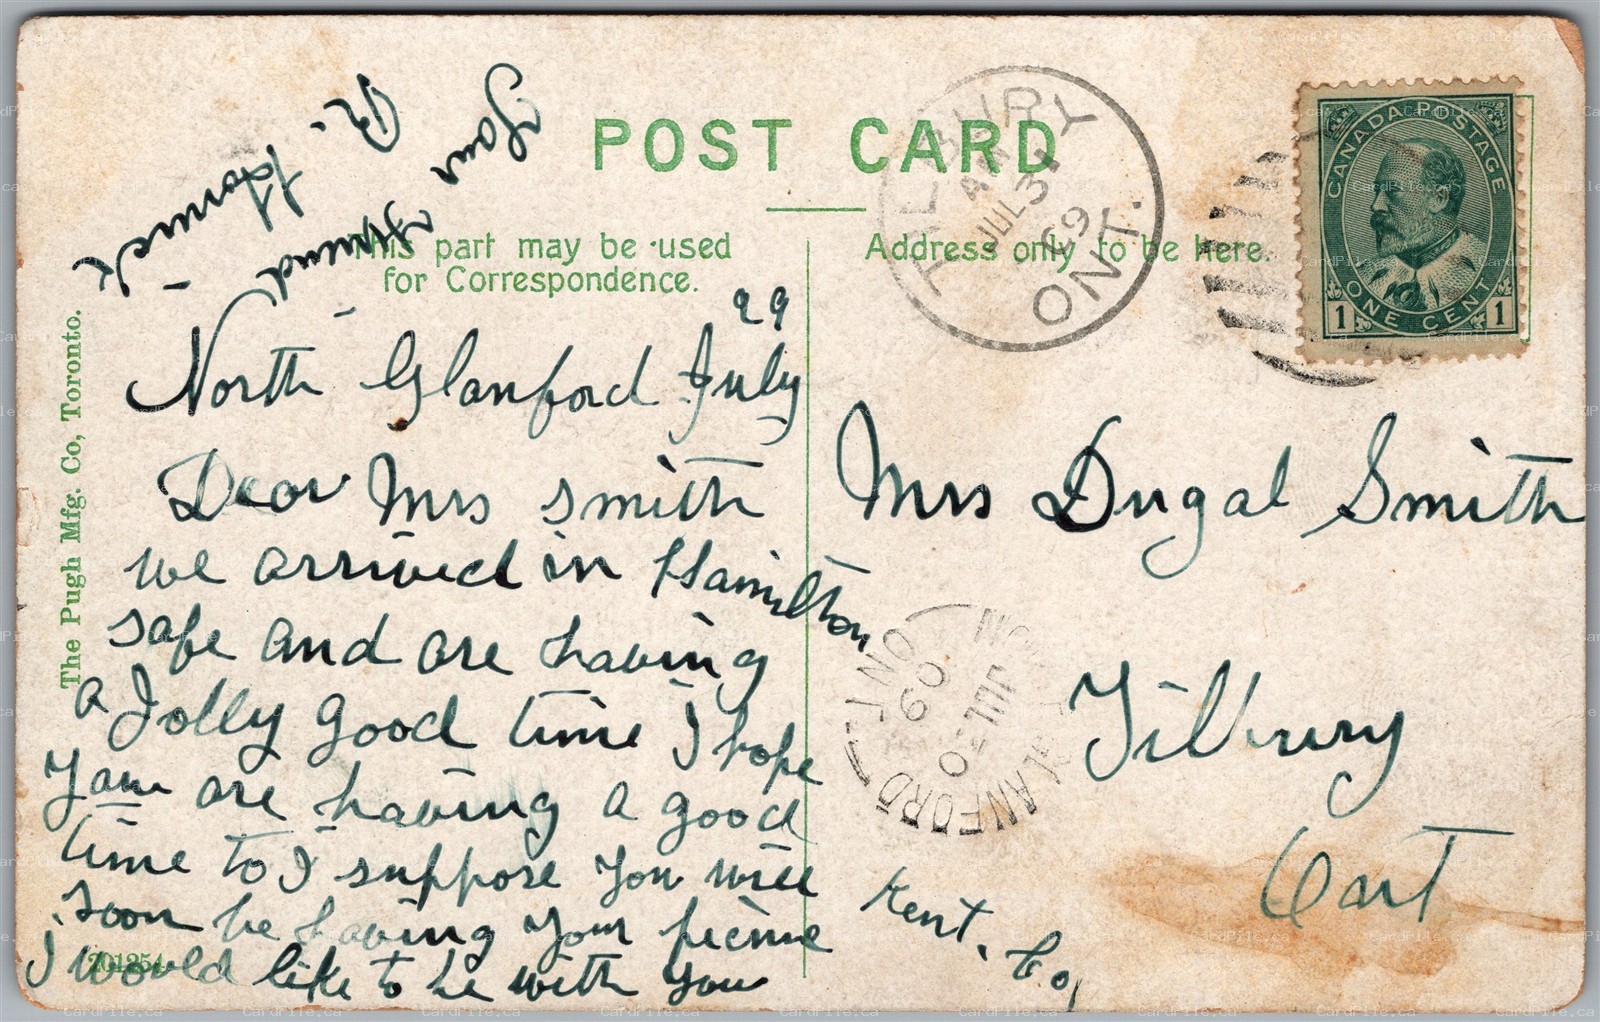 POST CARD
This part may be used
for Correspondence.
Address only to be here.
TILBURY
AM
JUL 31
09
ONT.
CANADA POSTAGE
ONE CENT
1 1
The Pugh Mfg. Co, Toronto.
North Glanford July
29
Dear Mrs smith
we arrived in Hamilton
safe and are having
a Jolly good time I hope
you are having a good
time to I suppose you will
soon be having your picnic
I would like to be with you
201254
Your Friend
R. 
Mrs Dugal Smith
Tilbury
Ont
Kent. Co,
GLANFORD
JUL 30
09
ONT.